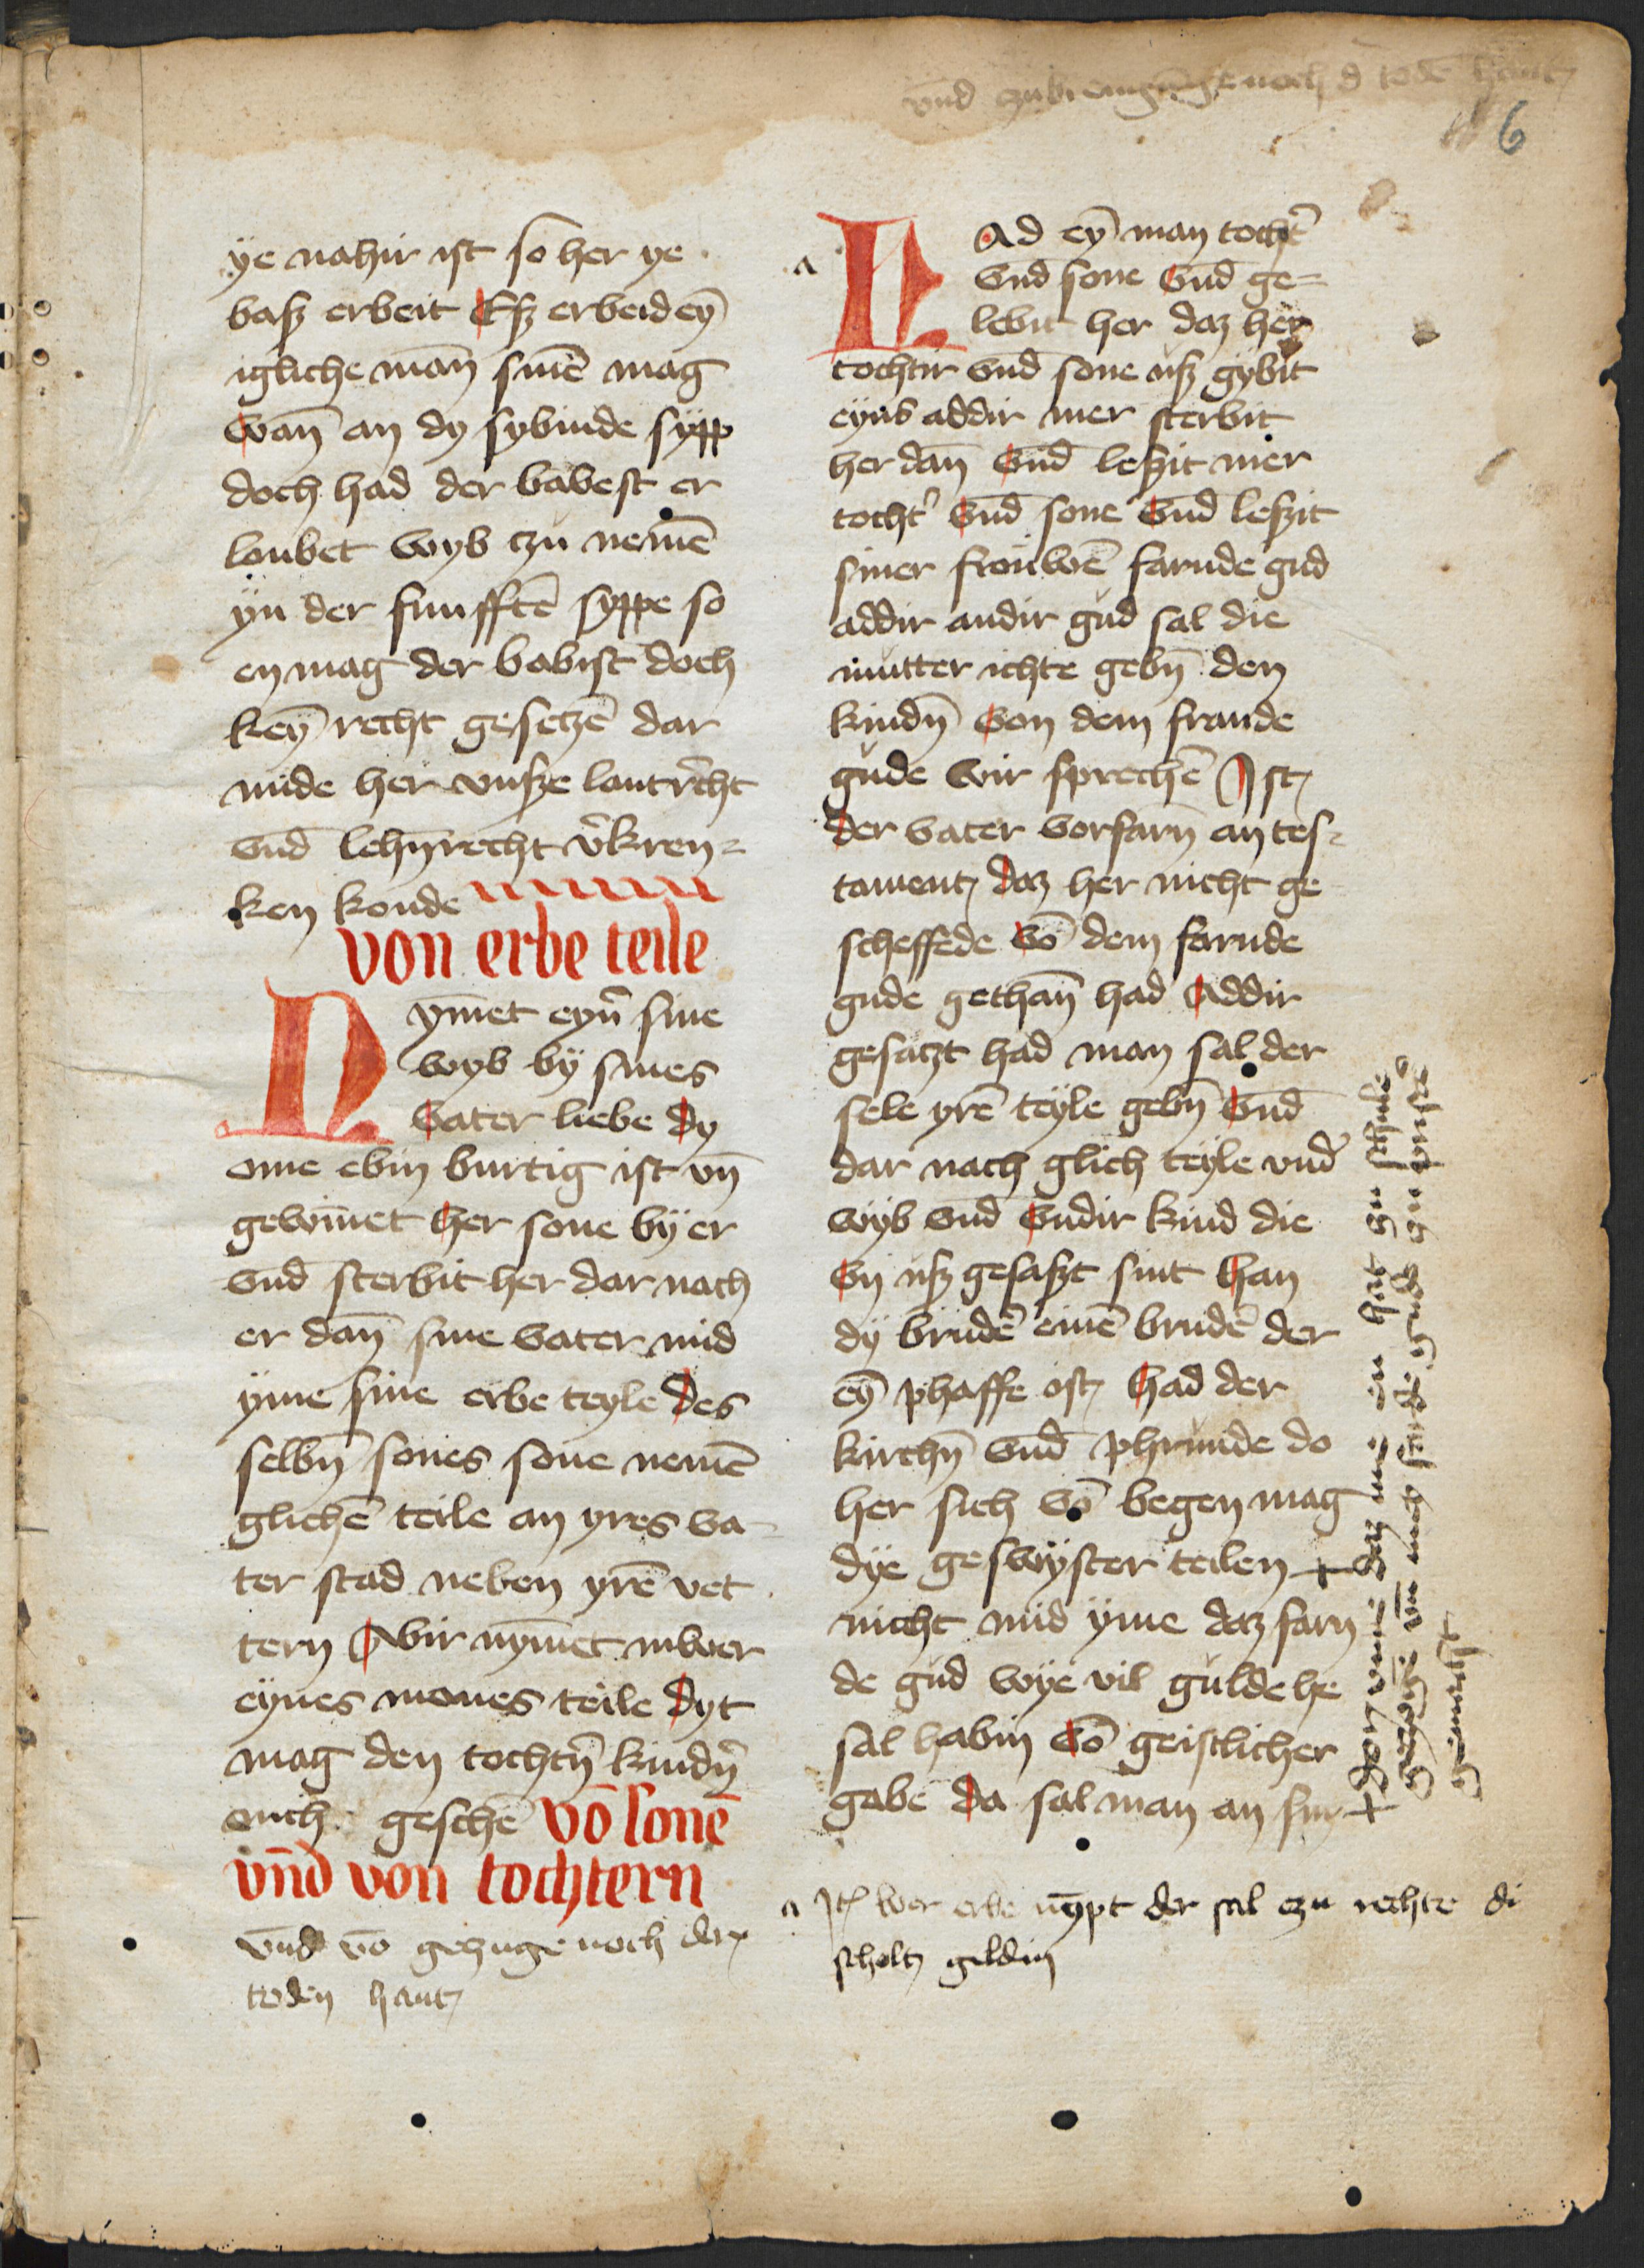 vnd czubrengunge noch d toden hant
6
ÿe nahir ist so her ye
basz erbeit Esz erbeid eȳ
igliche mañ sinē mag
wañ an dy sybinde sypp
doch had der babest er
loubet wyb czu nemē
ÿn der funfftē syppe so
en mag der babist doch
keȳ recht gesetzē dar
mide her vnsze lantrecht
vnd lehnrecht v'kren-
ken konde
von erbe teile
Nymet eyn sine
wyb bÿ sines
vater liebe dy
ome ebin burtig ist vñ
gewīnet her sone bÿ er
vnd sterbit her dar nach
er dañ sine vater mid
ÿme sine erbe teyle des
selbn̄ sones sone nemē
glichē teile an yres va-
ter stad neben yrē vet
tern Wir nym̄et nwer
eÿnes manes teile dyt
mag den tocht'n kindn̄
ouch geschē vō sonē
vnd von tochtern
vnd vō gezuge noch der
toden hant
a
Had eȳ man tocht'
vnd sone vnd ge-
lebit her daz her
tochtir vnd sone usz gÿbit
eÿns addir mer sterbit
her dañ vnd leszit mer
tocht' vnd sone vnd leszit
siner frouwē farnde gud
addir andir gud sal die
mutter ichte gebn̄ den
kindn̄ von dem frande
gude wir sprechē Ist
der vater vorfarn̄ an tes-
tament daz her nicht ge
scheffede vō dem farnde
gude gethañ had Addir
gesatzt had man sal der
sele yrē teyle gebn̄ vnd
dar nach glich teyle vnd'
wÿb vnd vndir kind die
vn usz gesaszt sint han
dÿ brudē einē brudē der
eȳ phaffe ist had der
kirchn̄ vnd phrunde do
her sich vō begen mag
dÿe geswÿster teilen +
nicht mid ÿme daz farn
de gud wÿe vil gulde he
sal habin vō geistlicher
gabe da sal man an sin +
a It wer erbe nȳpt der sal czu rechte di
scholt geldin